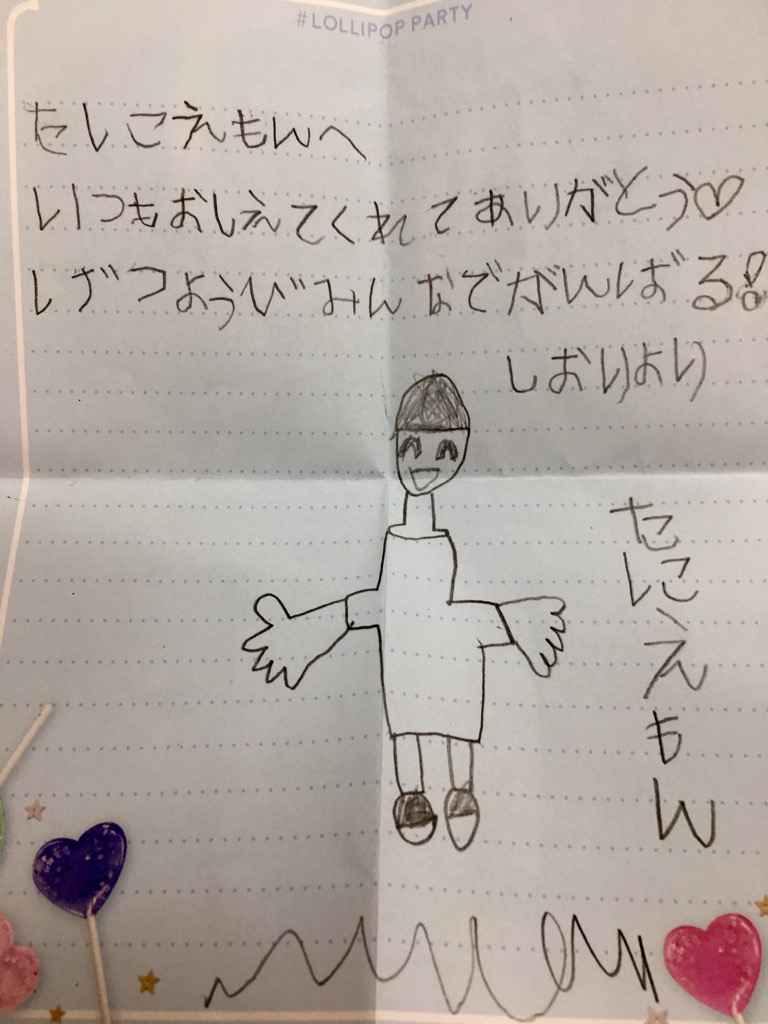 #LOLLIPOP PARTY
たにえもんへ
いつもおしえてくれてありがとう♡
げつようびみんなでがんばる!
しおりより
たにえもん